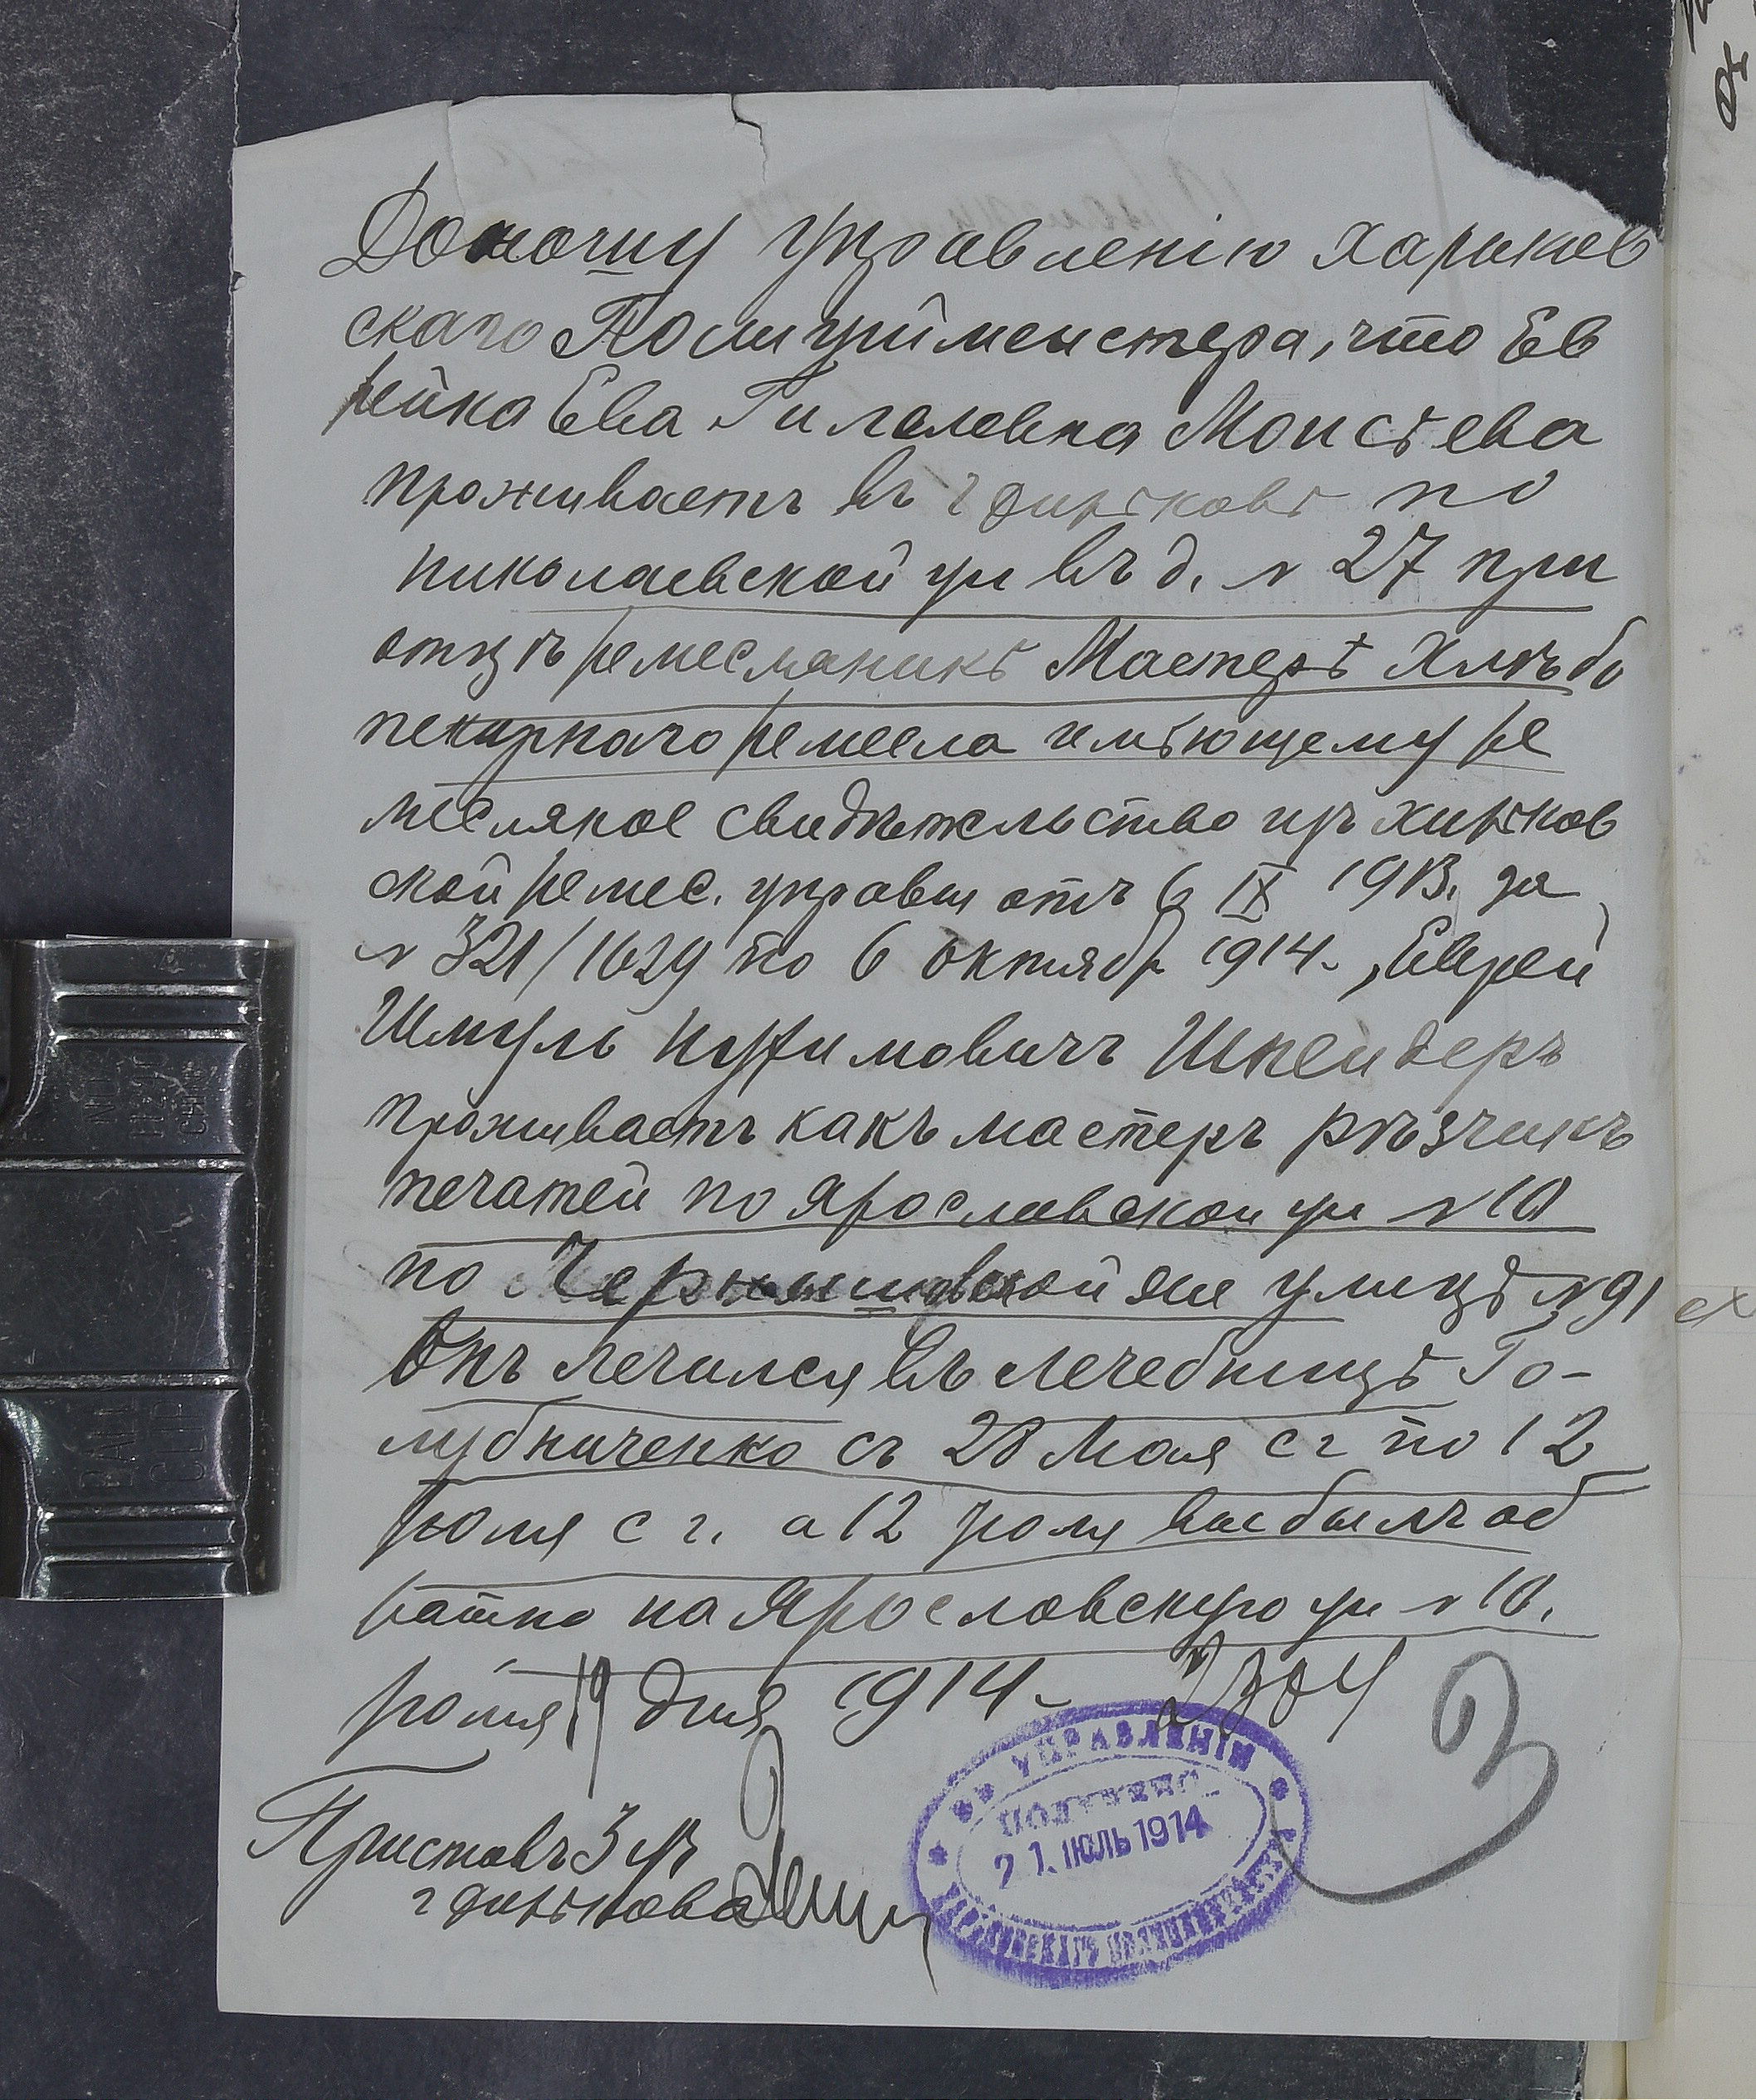 Доношу Управленію Харьков
скаго Полицiймейстера, что Ев
рейка Ева Гилелевна Моисѣева
проживаетъ въ г Харьковѣ по
николаевской ул въ д. № 27 при
отцѣ ремесленикѣ Мастерѣ Хлѣбо
пекарнаго ремесла имѣющему ре
месляное свидѣтельство изъ харьков
ской ремес. управы отъ 6 IX 1913. за
№ 321/1629 по 6 октябр 1914 г, Еврей
Шмуль Шнейдеръ
проживаетъ какъ мастеръ рѣзчикъ
печатей по Ярославской ул № 10
по Чернышевской же улицѣ № 91
Онъ лечился въ лечебницѣ Го-
лубниченко съ 28 Мая с г по 12
юля с г. а 12 юля выбылъ об
ратно на Ярославскую ул № 10.
юля 19 дня 1914 г
3
Приставъ 3 уч
г Харькова
УПРАВЛЕНІИ
ПОЛУЧЕНО
21. ІЮЛЬ 1914
ХАРЬКОВСКАГО ПОЛИЦІЙМЕЙСТЕРА